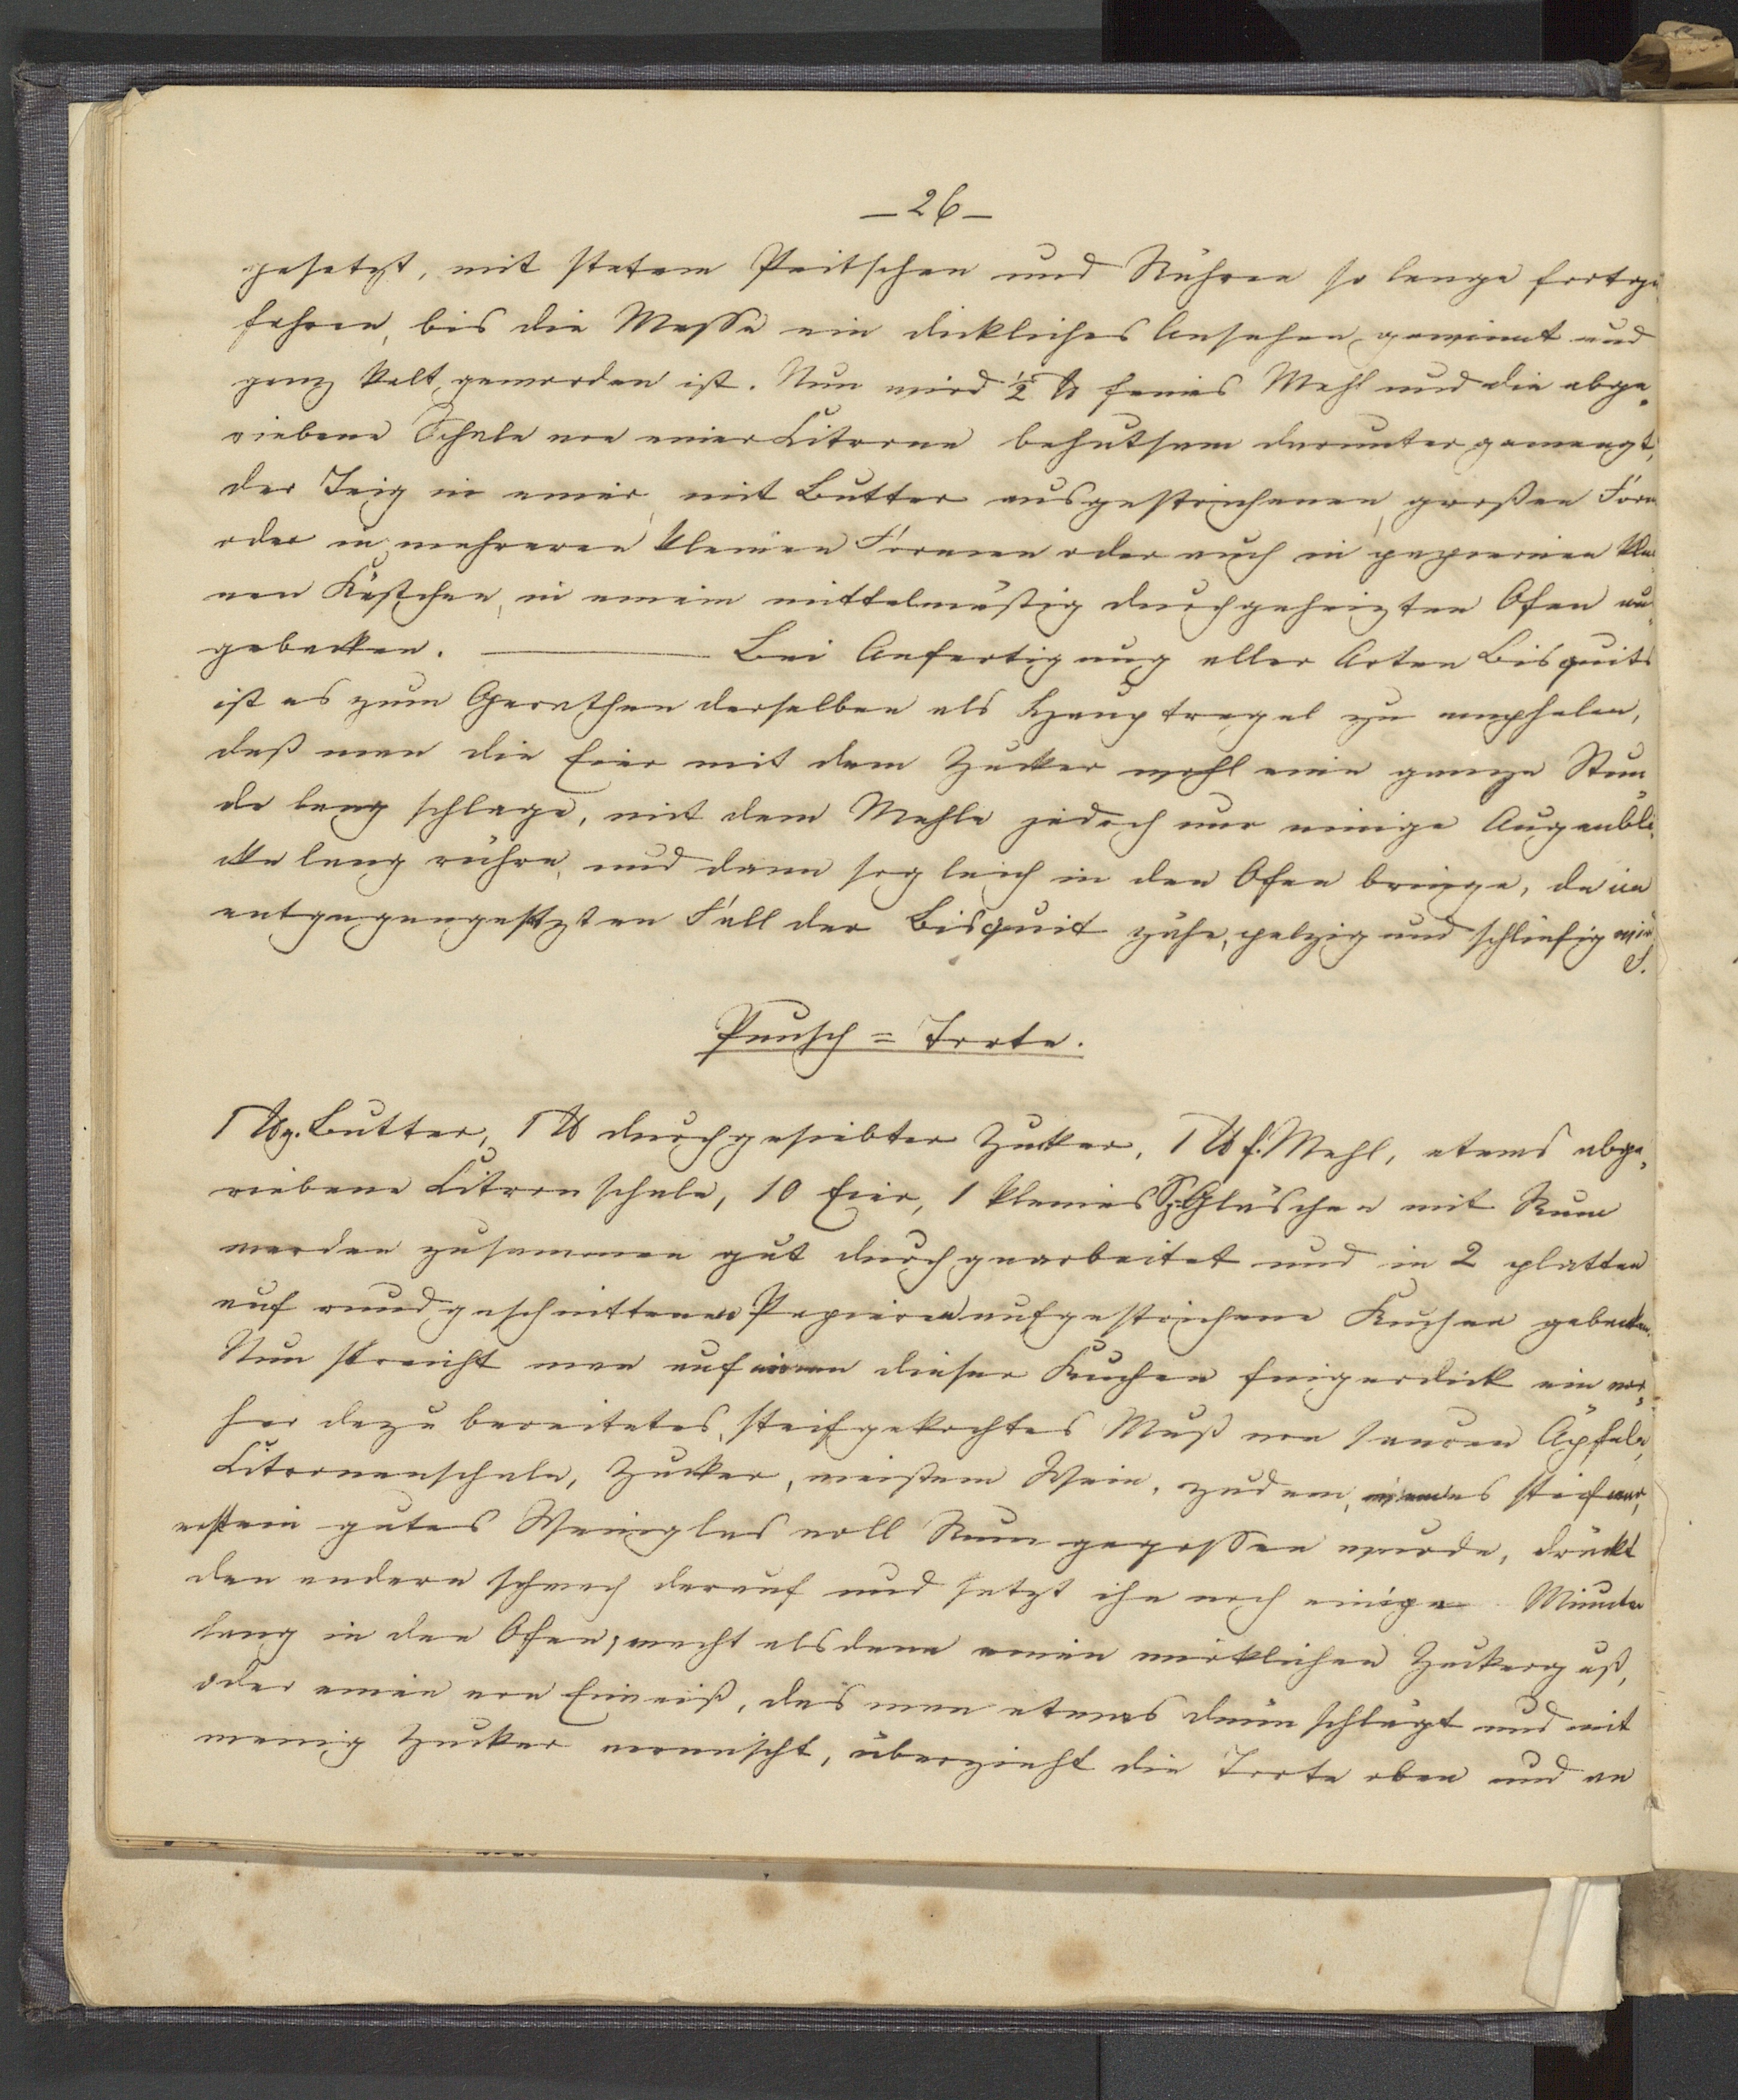 — 26 —
gesetzt, mit stetem Peitschen und Rühren so lange fortge-
fahren, bis die Masse ein dickliches Ansehen gewinnt und
ganz kalt geworden ist. Nun wird ½ ℔ feines Mehl und die abge-
riebene Schale von einer Citrone behutsam darunter gemengt,
der Teig in einer, mit Butter ausgestrichenen, großen Form
oder in mehreren kleinen Formen oder auch in papiernen klei-
nen Kästchen, in einem mittelmäßig durchgeheizten Ofen
gebacken. ——— Bei Anfertigung aller Arten Bisquits
ist es zum Gerathen derselben als Hauptregel zu empfehlen,
daß man die Eier mit dem Zucker wohl eine ganze Stun-
de lang schlage, mit dem Mehle jedoch nur einige Augenbli-
cke lang rühre, und dann sogleich in den Ofen bringe, da im
entgegengesetzten Fall der Bisquit zähe, pelzig und schliefig wir
d.
Punsch = Torte.
1 ℔ g. Butter, 1 ℔ durchgesiebter Zucker, 1 ℔ f. Mehl, etwas abge-
riebene Citronschale, 10 Eier, 1 kleines Gläschen mit Rum
werden zusammen gut durchgearbeitet und in 2 platten
auf rundgeschnittenen Papieren aufgestrichene Kuchen gebacken.
Nun streicht man auf einen dieser Kuchen fingerdick ein vor-
her dazu bereitetes, steifgekochtes Muß von sauren Äpfeln,
Citronenschale, Zucker, weißem Wein, zu dem, steif war,
erst ein gutes Weinglas voll Rum gegossen wurde, drückt
den andern schwach darauf und setzt ihn noch einige Minuten
lang in den Ofen; macht alsdann einen wirklichen Zuckerguß,
oder einen von Eiweiß, das man etwas dünn schlägt und mit
wenig Zucker vermischt, überzieht die Torte oben und an